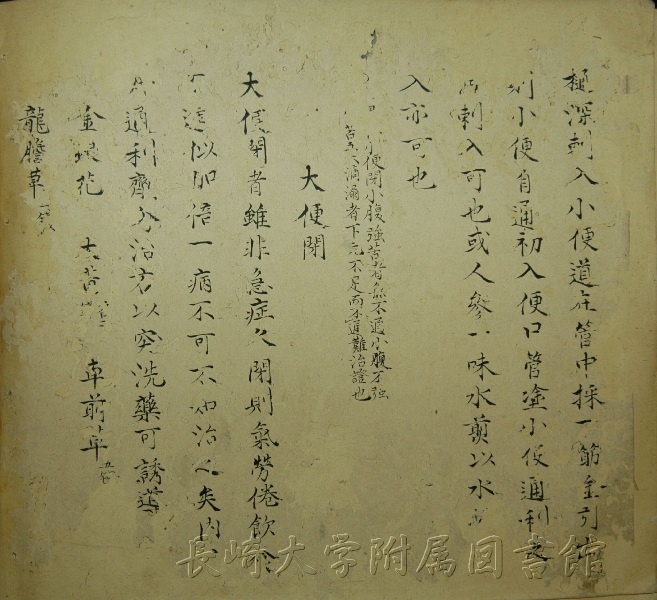 樋深刺入小便道在管中採一筋金引
則小便自通初入便口管塗小便通利之
刺入可也或人參一味水煎以水
入亦可也
小便閉小腹強苦 無不通小腹不強
滴瀝者下元不足而不通難治證也
大便閉
大便閉者雖非急症久閉則氣労倦飲食
不進似加倍一病不可不知治人矣内
通利劑外治若以突洗藥可誘導
金銀花 大黄 車前草
龍膽草
長崎大学附属図書館